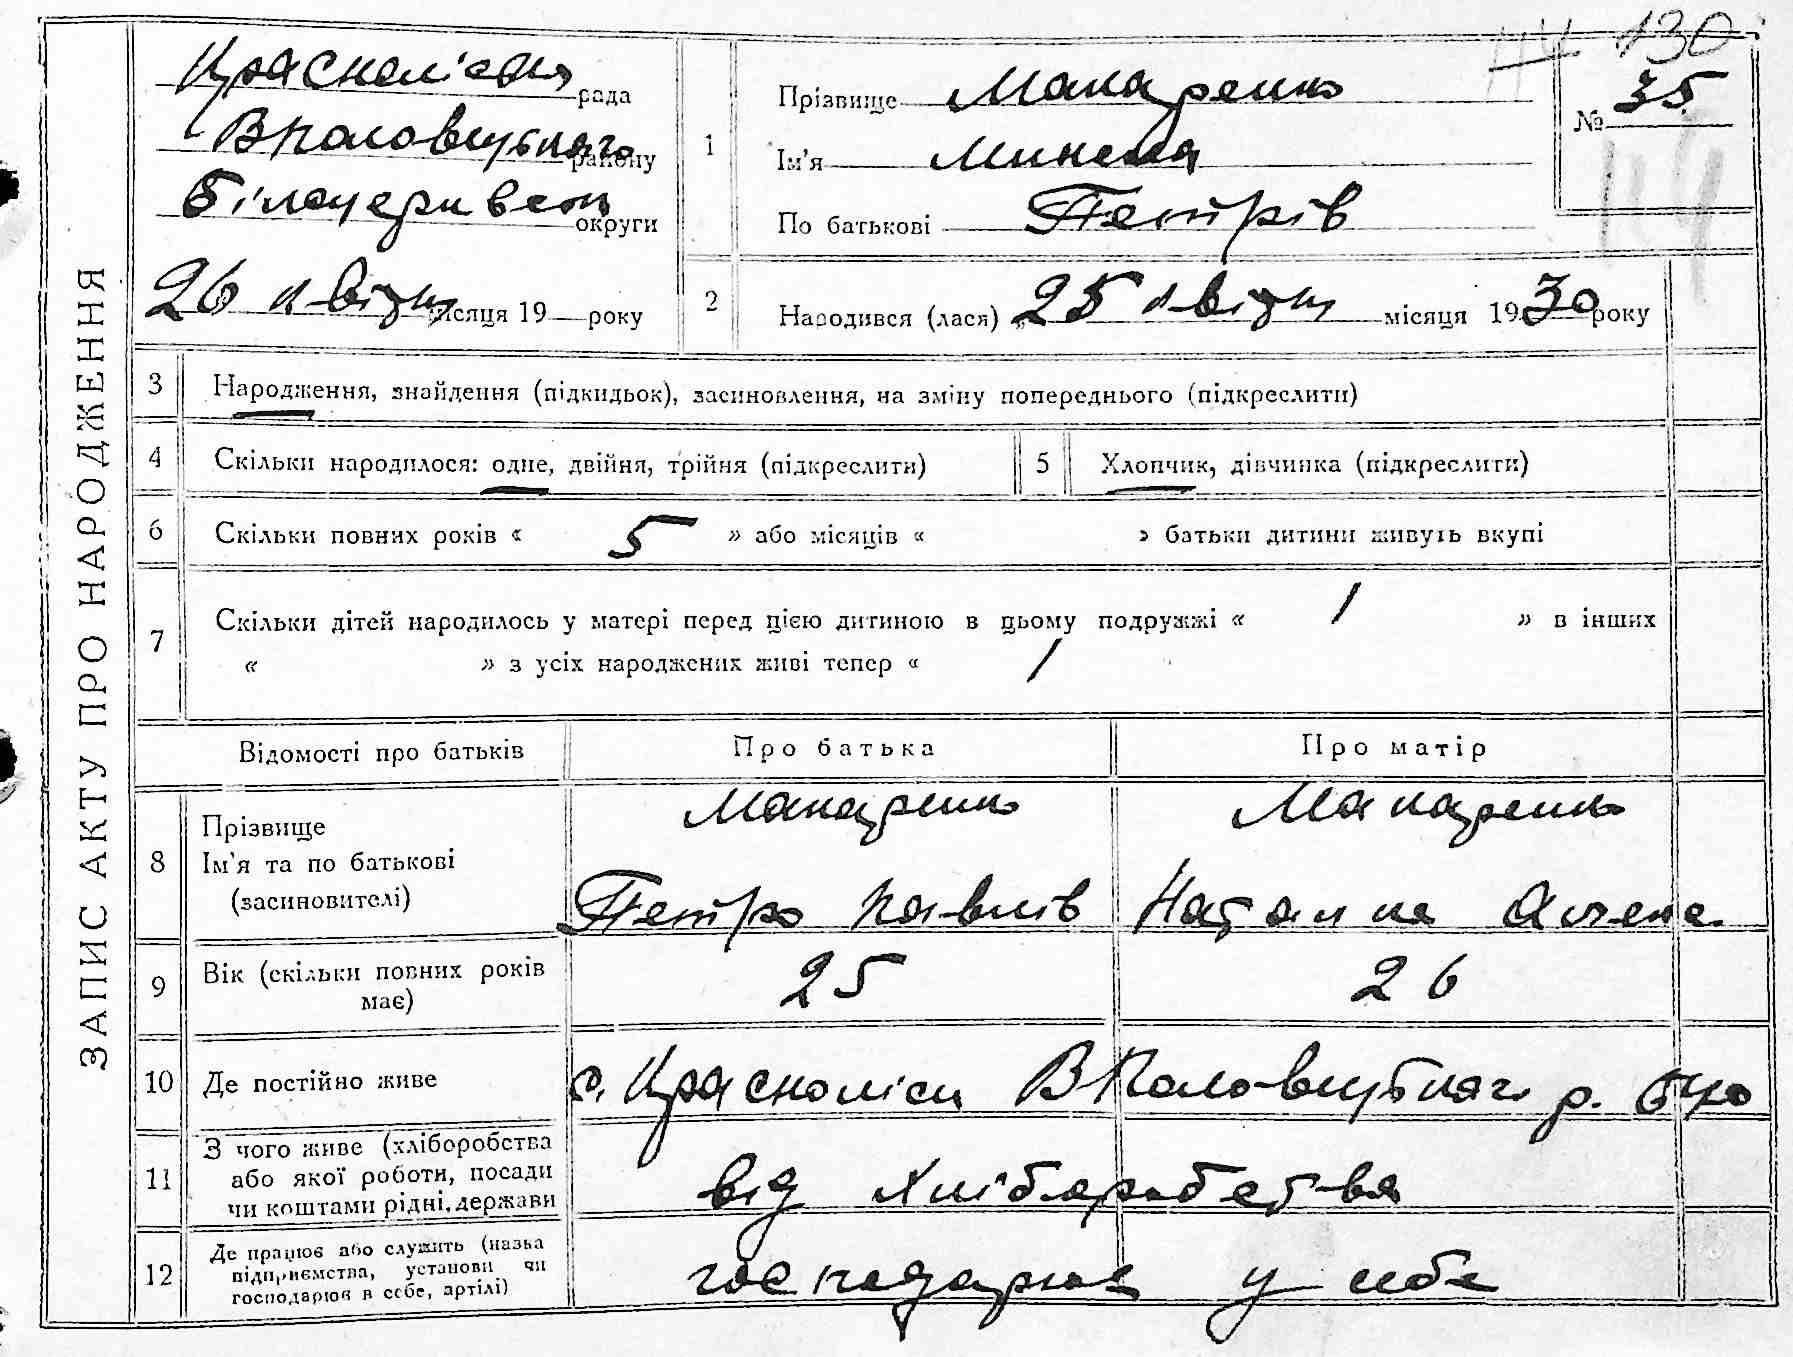 114 130
ЗАПИС АКТУ ПРО НАРОДЖЕННЯ
Красноліська рада
В Половецького району
Білоцерківськ округи
26 квітн місяця 19 року
1 Прізвище Макаренко
Ім'я Микола
По батькові Петрів
№ 35
114
2 Народився (лася) „ 25 квітн місяця 1930 року
3 Народження, знайдення (підкидьок), засиновлення, на зміну попереднього (підкреслити)
4 Скільки народилося: одне, двійня, трійня (підкреслити) 5 Хлопчик, дівчинка (підкреслити)
6 Скільки повних років « 5 » або місяців « » батьки дитини живуть вкупі
7 Скільки дітей народилось у матері перед цією дитиною в цьому подружжі « 1 » в інших
« » з усіх народжених живі тепер « 1
Відомості про батьків Про батька Про матір
8 Прізвище
Ім'я та по батькові
(засиновителі)
Макаренко Макаренко
Петро Павлів Наталка
9 Вік (скільки повних років
має)
25 26
10 Де постійно живе с. Красноліси В Половецького р. БЦо
11 З чого живе (хліборобства
або якої роботи, посади
чи коштами рідні, держави
від хліборобства
12 Де працює або служить (назва
підприємства, установи чи
господарює в себе, артілі)
господарює у себе